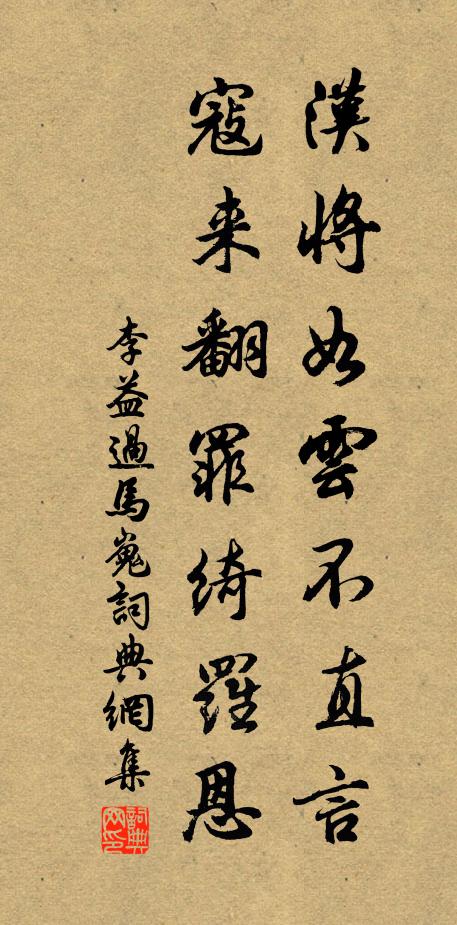 漢將如雲不直言
寇来翻罪綺羅恩
李益過馬嵬詞典網集
詞典网印